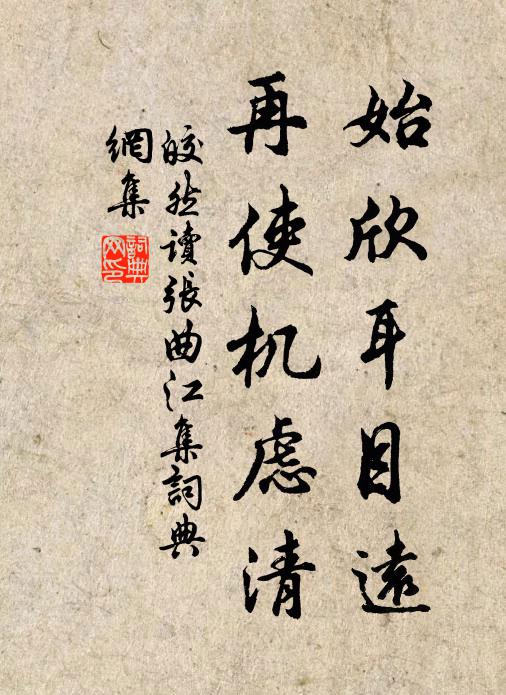 始欣耳目遠
再使机慮清
皎然讀張曲江集詞典
網集
詞典
网印